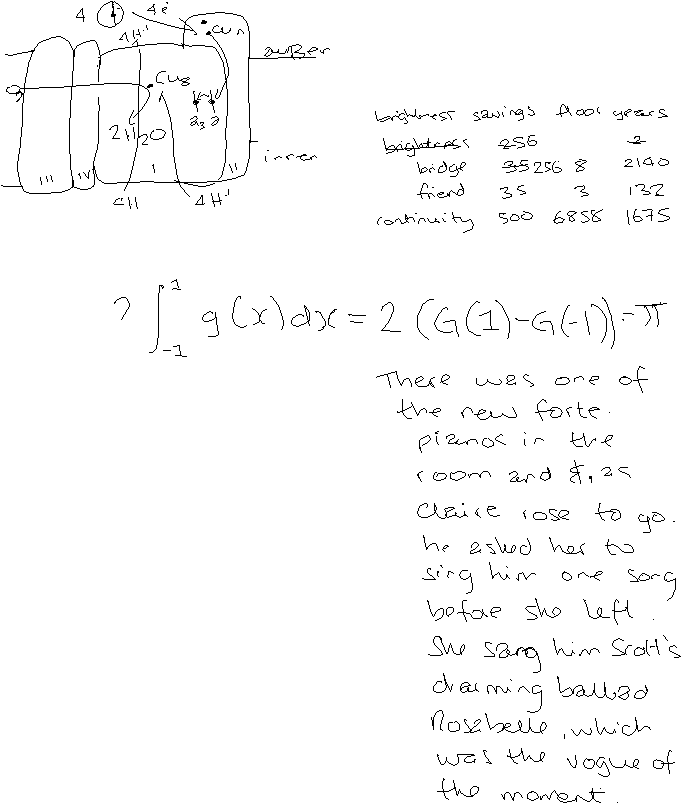 4 4e
4H⁺ Cu₁ außer
O₂ Cu₈
2H₂O a₃ a
inner
III IV I II
4H 4H⁺
brightness savings floor years
brightness 256 2
bridge 35 256 8 2140
friend 35 3 132
continuity 500 6858 1675
? ∫₋₁¹ g(x)dx = 2 (G(1)-G(-1))-π
There was one of
the new forte.
pianos in the
room and &, as
Claire rose to go.
he asked her to
sing him one song
before she left.
She sang him Scott's
charming ballad
Rosabelle, which
was the vogue of
the moment.